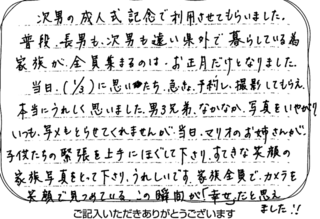 次男の成人式記念で利用させてもらいました。
普段、長男も、次男も遠い県外で暮らしている為
家族が、全員集まるのは、お正月だけとなりました。
当日、(1/3)に思いたち、急きょ予約し、撮影してもらえ、
本当にうれしく思いました。男3兄弟、なかなか、写真をいやがり
いつも、写メもとらせてくれませんが、当日、マリオのお姉さんが、
子供たちの緊張を上手にほぐして下さり、すてきな笑顔の
家族写真をとって下さり、うれしいです。家族全員で、カメラを
笑顔で見つめている、この瞬間が「幸せ」だと思え
ました!!
ご記入いただきありがとうございます